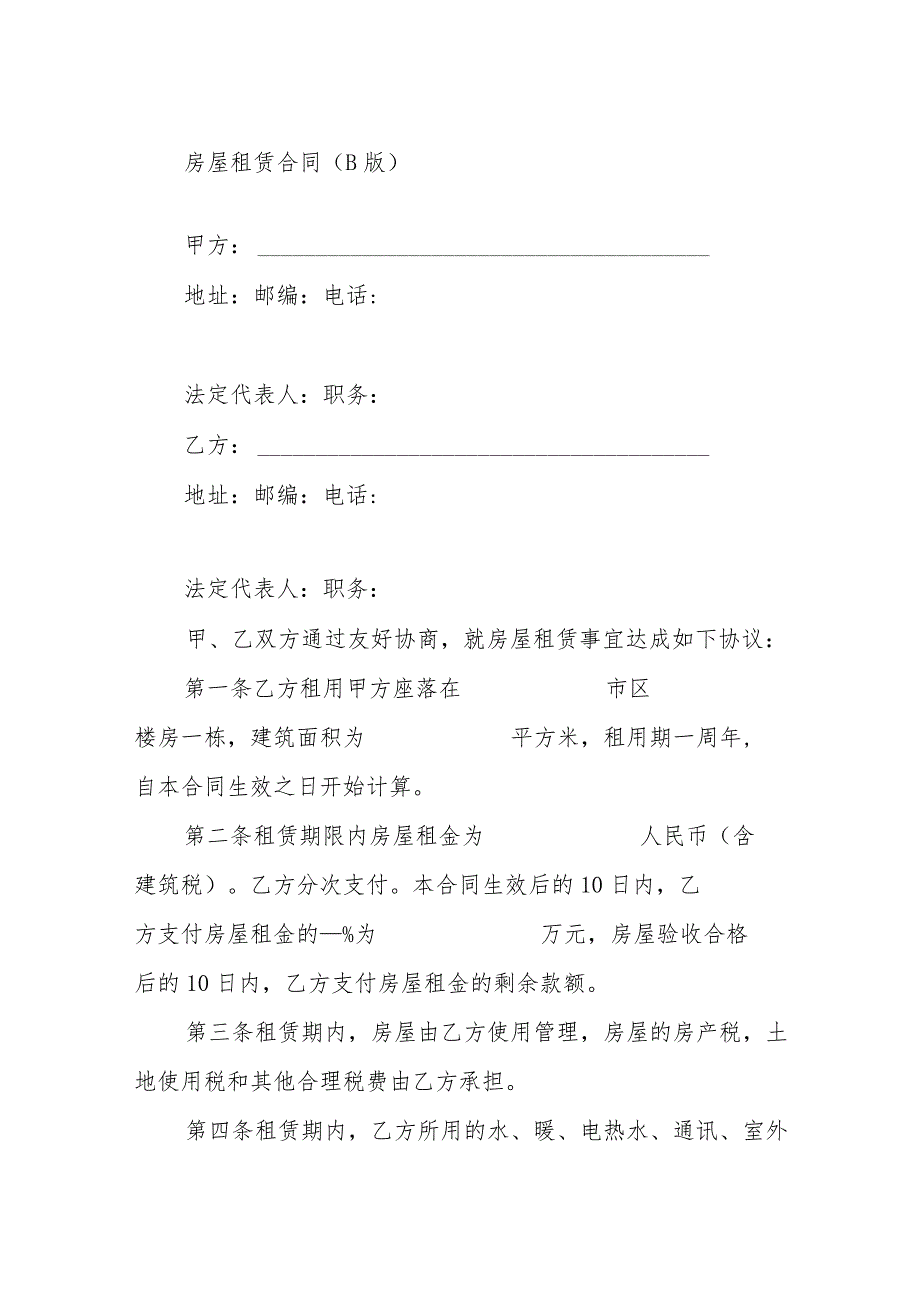 房屋租赁合同（B 版）
甲方： _______________________________________
地址：邮编：电话:
法定代表人：职务：
乙方： _______________________________________
地址：邮编：电话:
法定代表人：职务：
甲、乙双方通过友好协商，就房屋租赁事宜达成如下协议：
第一条乙方租用甲方座落在 市区
楼房一栋，建筑面积为 平方米，租用期一周年，
自本合同生效之日开始计算。
第二条租赁期限内房屋租金为 人民币（含
建筑税）。乙方分次支付。本合同生效后的 10 日内，乙
方支付房屋租金的—%为 万元，房屋验收合格
后的 10 日内，乙方支付房屋租金的剩余款额。
第三条租赁期内，房屋由乙方使用管理，房屋的房产税，土
地使用税和其他合理税费由乙方承担。
第四条租赁期内，乙方所用的水、暖、电热水、通讯、室外